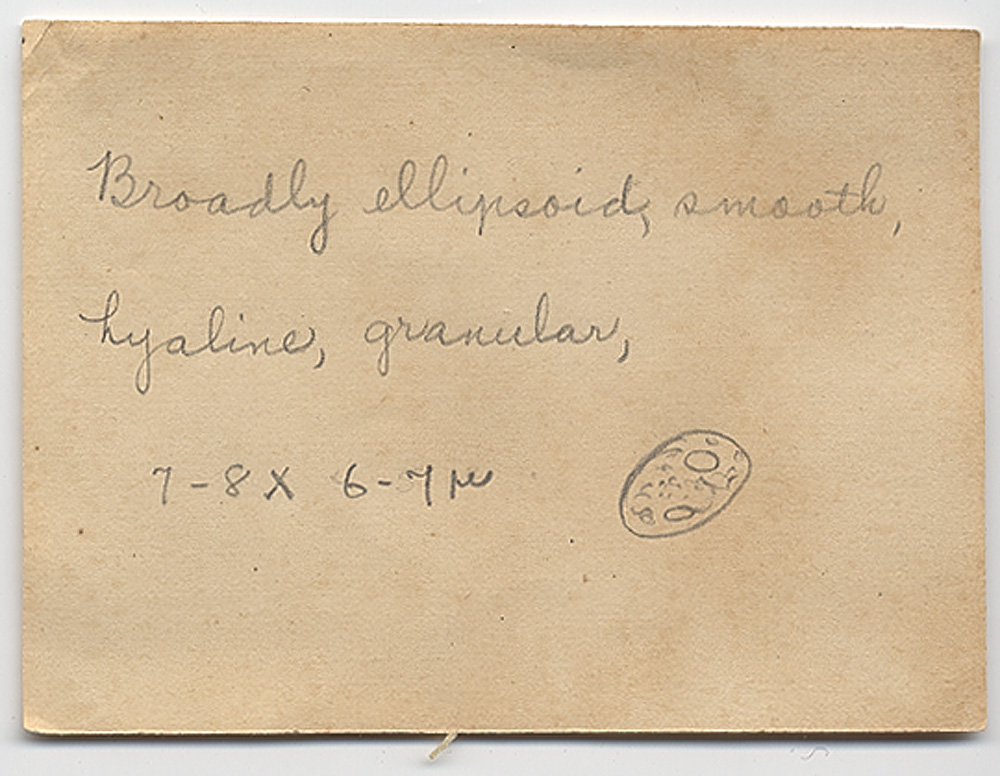 Broadly ellipsoid, smooth,
hyaline, granular,
7-8 X 6-7 μ